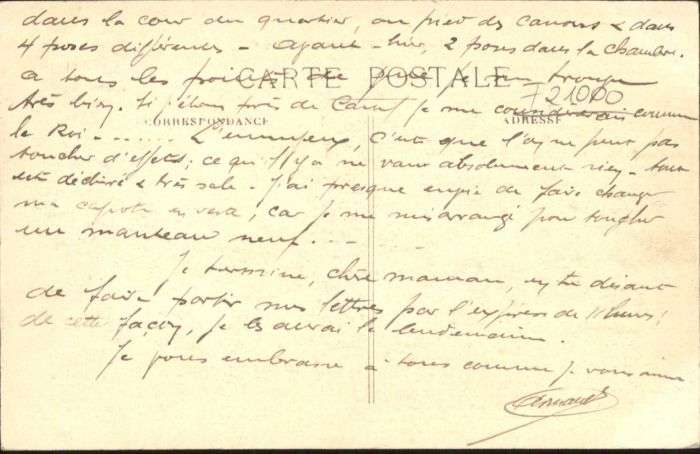 dans la cour du quartier, au pied des canons & dans
4 poses différentes - avant-hier, 2 poses dans la chambre.
CARTE POSTALE
à tous les points de vue je me trouve
très bien. Si j'étais près de Canet je me considérerais comme
721000
CORRESPONDANCE
ADRESSE
le Roi - L'ennuyeux, c'est que l'on ne peut pas
toucher d'effets; ce qu'il y a ne vaut absolument rien - tout
est déchiré & très sale - J'ai presque envie de faire changer
ma capote en veste, car je me suis arrangé pour toucher
un manteau neuf...
Je termine, chère maman, en te disant
de faire partir mes lettres par l'express de 11 heures;
de cette façon, je les aurai le lendemain.
Je vous embrasse à tous comme je vous aime